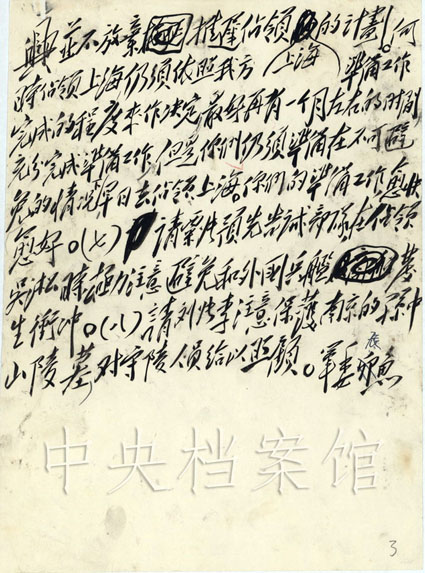 並不放棄推遲佔領上海的計劃。何
時佔領上海仍須依照我方準備工作
完成的程度來作決定。最好再有一个月左右的时間
充分完成準備工作。但是你们仍須準備在不可避
免的情況早日去佔領上海。你们的準備工作愈快
愈好。(七)請粟、陈預先告诫部隊在佔領
吳淞時極力注意避免和外國兵艦發
生衝冲。(八)請刘、李注意保護南京的孫中
山陵墓,对守陵人員给以照顧。軍委
辰魚
中央档案馆
3